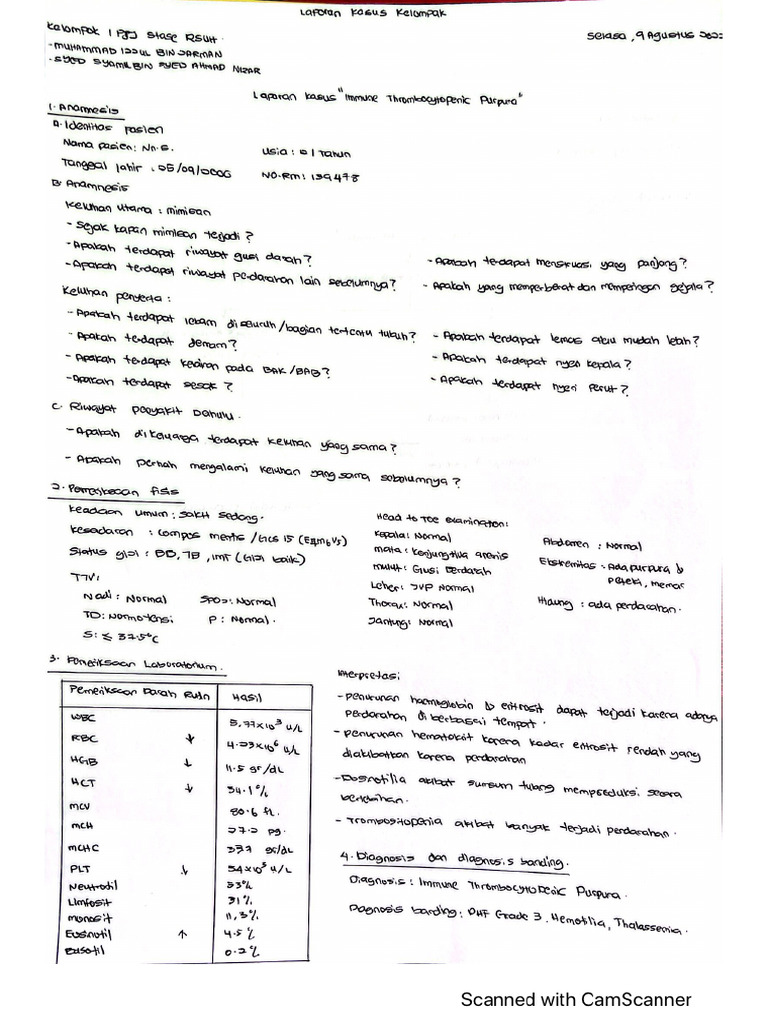 Laporan Kasus Kelompak
Kelompok 1 PPJ Stase RSUH.
Selasa, 9 Agustus 2022
- MUHAMMAD IZZUL BIN JARMAN
- SYED SYAMIL BIN SYED AHMAD NIZAR
Laporan Kasus "Immune Thrombocytopenic Purpura"
1. Anamnesis
A. Identitas pasien
Nama pasien: Nn. S.
Usia : 21 Tahun
Tanggal lahir : 05/09/2000
NO. RM : 139478
B. Anamnesis
Keluhan Utama : mimisan
- Sejak kapan mimisan terjadi?
- Apakah terdapat riwayat gusi darah?
- Apakah terdapat menstruasi yang panjang?
- Apakah terdapat riwayat perdarahan lain sebelumnya?
- Apakah yang memperberat dan memperingan gejala?
Keluhan penyerta :
- Apakah terdapat lebam di seluruh/bagian tertentu tubuh?
- Apakah terdapat lemas atau mudah lelah?
- Apakah terdapat demam?
- Apakah terdapat nyeri kepala?
- Apakah terdapat kelainan pada BAK/BAB?
- Apakah terdapat sesak ?
- Apakah terdapat nyeri perut?
C. Riwayat penyakit Dahulu.
- Apakah di keluarga terdapat keluhan yang sama?
- Apakah pernah mengalami keluhan yang sama sebelumnya?
2. Pemeriksaan fisis
Keadaan umum : sakit sedang.
Kesadaran : compos mentis / GCS 15 (E4M6V5)
Status gizi : BB, TB, IMT (Gizi baik)
TTV:
Nadi : Normal
SPO2 : Normal
TD: Normotensi
P : Normal.
S: ≤ 37.5°C
Head to Toe examination:
Kepala: Normal
mata : Konjungtiva anemis
mulut : Gusi Berdarah
Leher : JVP Normal
Thorax : Normal
Jantung: Normal
Abdomen : Normal
Ekstremitas : Ada purpura &
peteki, memar
Hidung : ada perdarahan.
3. Pemeriksaan Laboratorium.
Pemeriksaan Darah Rutin Hasil
WBC 5,77x10³ u/L
RBC ↓ 4.23x10⁶ u/L
HGB ↓ 11.5 gr/dL
HCT ↓ 34.1%
MCV 80.6 fL.
MCH 27.2 pg.
MCHC gr/dL
PLT ↓ 54x10³ u/L
Neutrofil 53%
Limfosit 31%
monosit 11,3%
Eusnofil ↑ 4.5%
Basofil 0.2%
Interpretasi
- penurunan haemoglobin & eritrosit dapat terjadi karena adanya
perdarahan di berbagai tempat.
- penurunan hematokrit karena kadar eritrosit rendah yang
diakibatkan karena perdarahan
- akibat sumsum tulang memproduksi secara
berlebihan.
- Trombositopenia akibat banyak terjadi perdarahan.
4. Diagnosis dan diagnosis banding.
Diagnosis : Immune Thrombocytopenic Purpura.
Diagnosis banding : DHF Grade 3, Hemofilia, Thalassemia.
Scanned with CamScanner